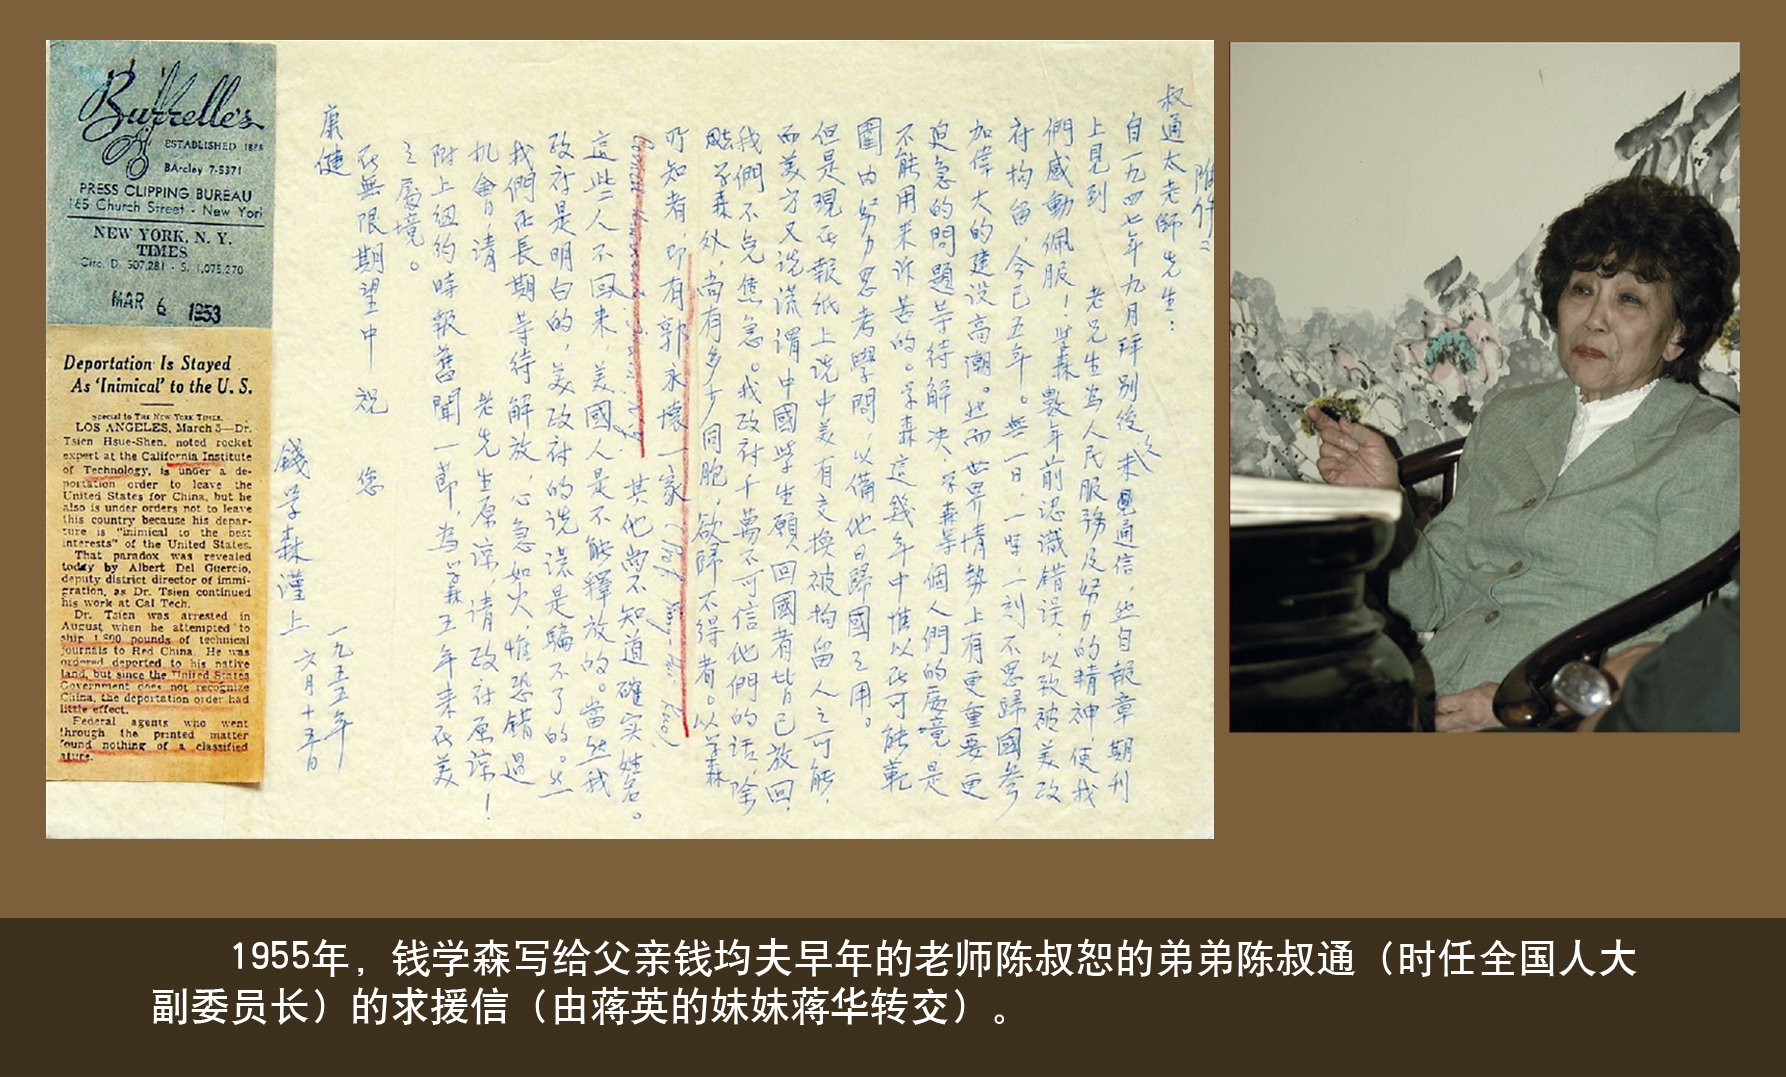 Burrelle's
ESTABLISHED 1888
BArclay 7-5371
PRESS CLIPPING BUREAU
165 Church Street - New York
NEW YORK, N. Y.
TIMES
Circ. D. 507,281 - S. 1,075,270
MAR 6 1953
Deportation Is Stayed
As 'Inimical' to the U. S.
Special to THE NEW YORK TIMES.
LOS ANGELES, March 5—Dr.
Tsien Hsue-Shen, noted rocket
expert at the California Institute
of Technology, is under a de-
portation order to leave the
United States for China, but he
also is under orders not to leave
this country because his depar-
ture is "inimical to the best
interests" of the United States.
That paradox was revealed
today by Albert Del Guercio,
deputy district director of immi-
gration, as Dr. Tsien continued
his work at Cal Tech.
Dr. Tsien was arrested in
August when he attempted to
ship 1,800 pounds of technical
journals to Red China. He was
ordered deported to his native
land, but since the United States
Government does not recognize
China, the deportation order had
little effect.
Federal agents who went
through the printed matter
found nothing of a classified
nature.
附件二
叔通太老師先生：
自一九四七年九月拜別後久未通信，然自報章期刊
上見到 老先生為人民服務及努力的精神，使我
們感動佩服！学森數年前認識錯误，以致被美政
府拘留，今已五年。無一日、一時、一刻不思歸國參
加偉大的建设高潮。然而世界情勢上有更重要更
迫急的問題等待解決，学森等個人們的處境，是
不能用来诉苦的。学森這幾年中惟以在可能範
圍内努力思考學問，以備他日歸國之用。
但是現在報紙上说中美有交换被拘留人之可能，
而美方又说謊謂中國學生願回國者皆已放回，
我們不免焦急。我政府千萬不可信他們的话，除
学森外，尚有多少同胞，欲歸不得者。以学森
所知者，即有郭永懷一家
其他尚不知道確实姓名。
這些人不回来，美國人是不能釋放的。當然我
政府是明白的，美政府的说謊是騙不了的。然
我們在長期等待解放，心急如火，惟恐錯過
机會，请 老先生原諒，请政府原諒！
附上纽约時報舊聞一節，為学森五年来在美
之處境。
在無限期望中祝 您
康健
錢学森謹上
一九五五年
六月十五日
1955年，钱学森写给父亲钱均夫早年的老师陈叔恕的弟弟陈叔通（时任全国人大
副委员长）的求援信（由蒋英的妹妹蒋华转交）。